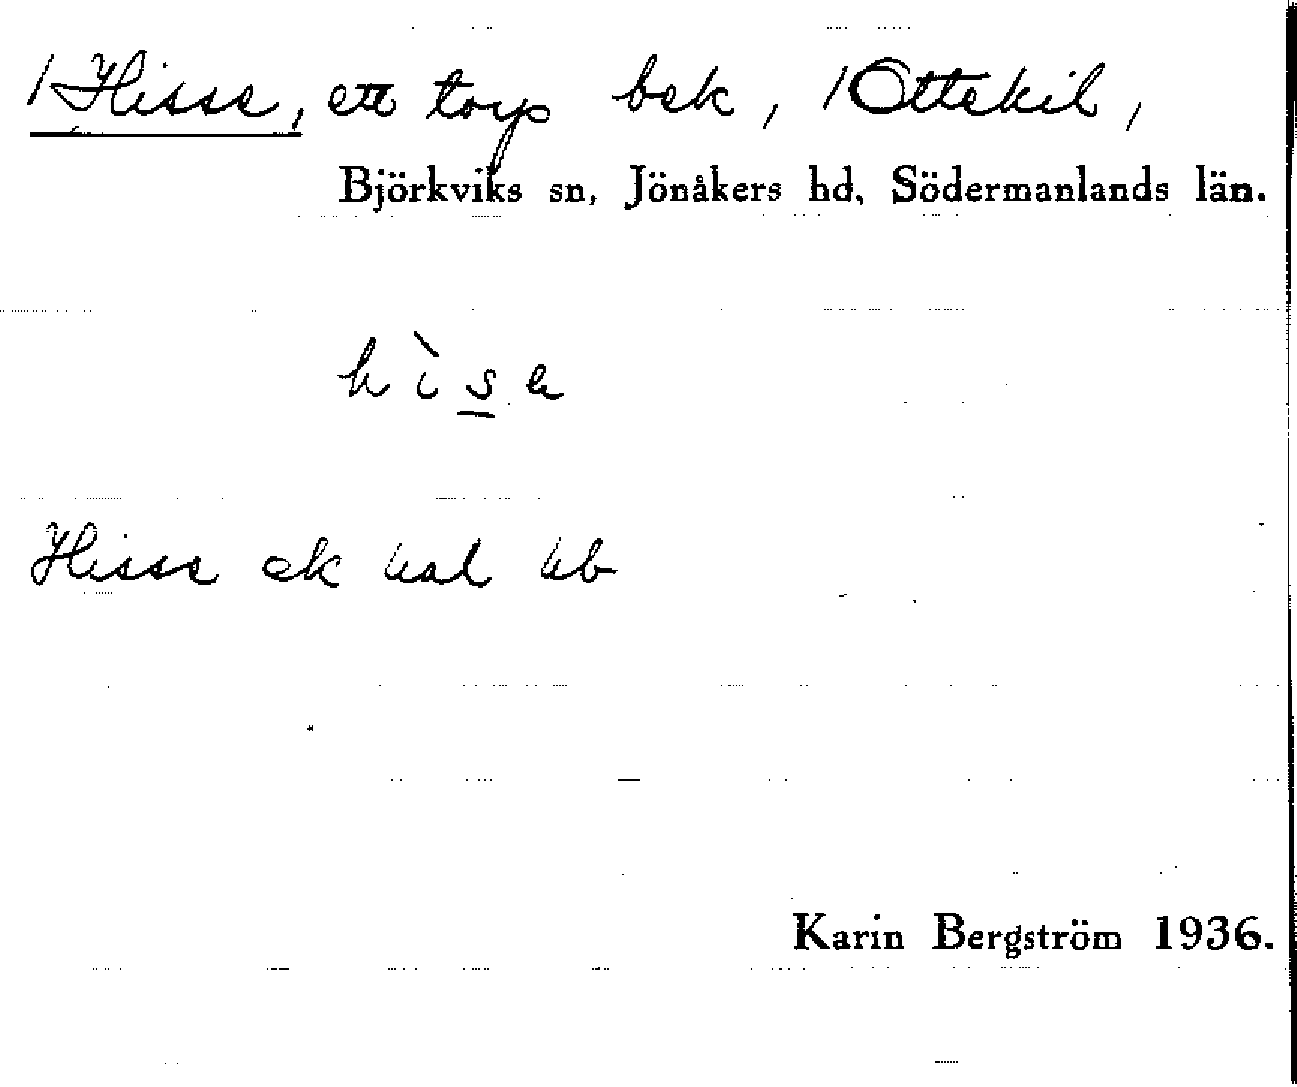 /Hisse, ett torp bek, /Ottekil,
Björkviks sn, Jönåkers hd, Södermanlands län.
hìse
Hisse ek kal kb
Karin Bergström 1936.